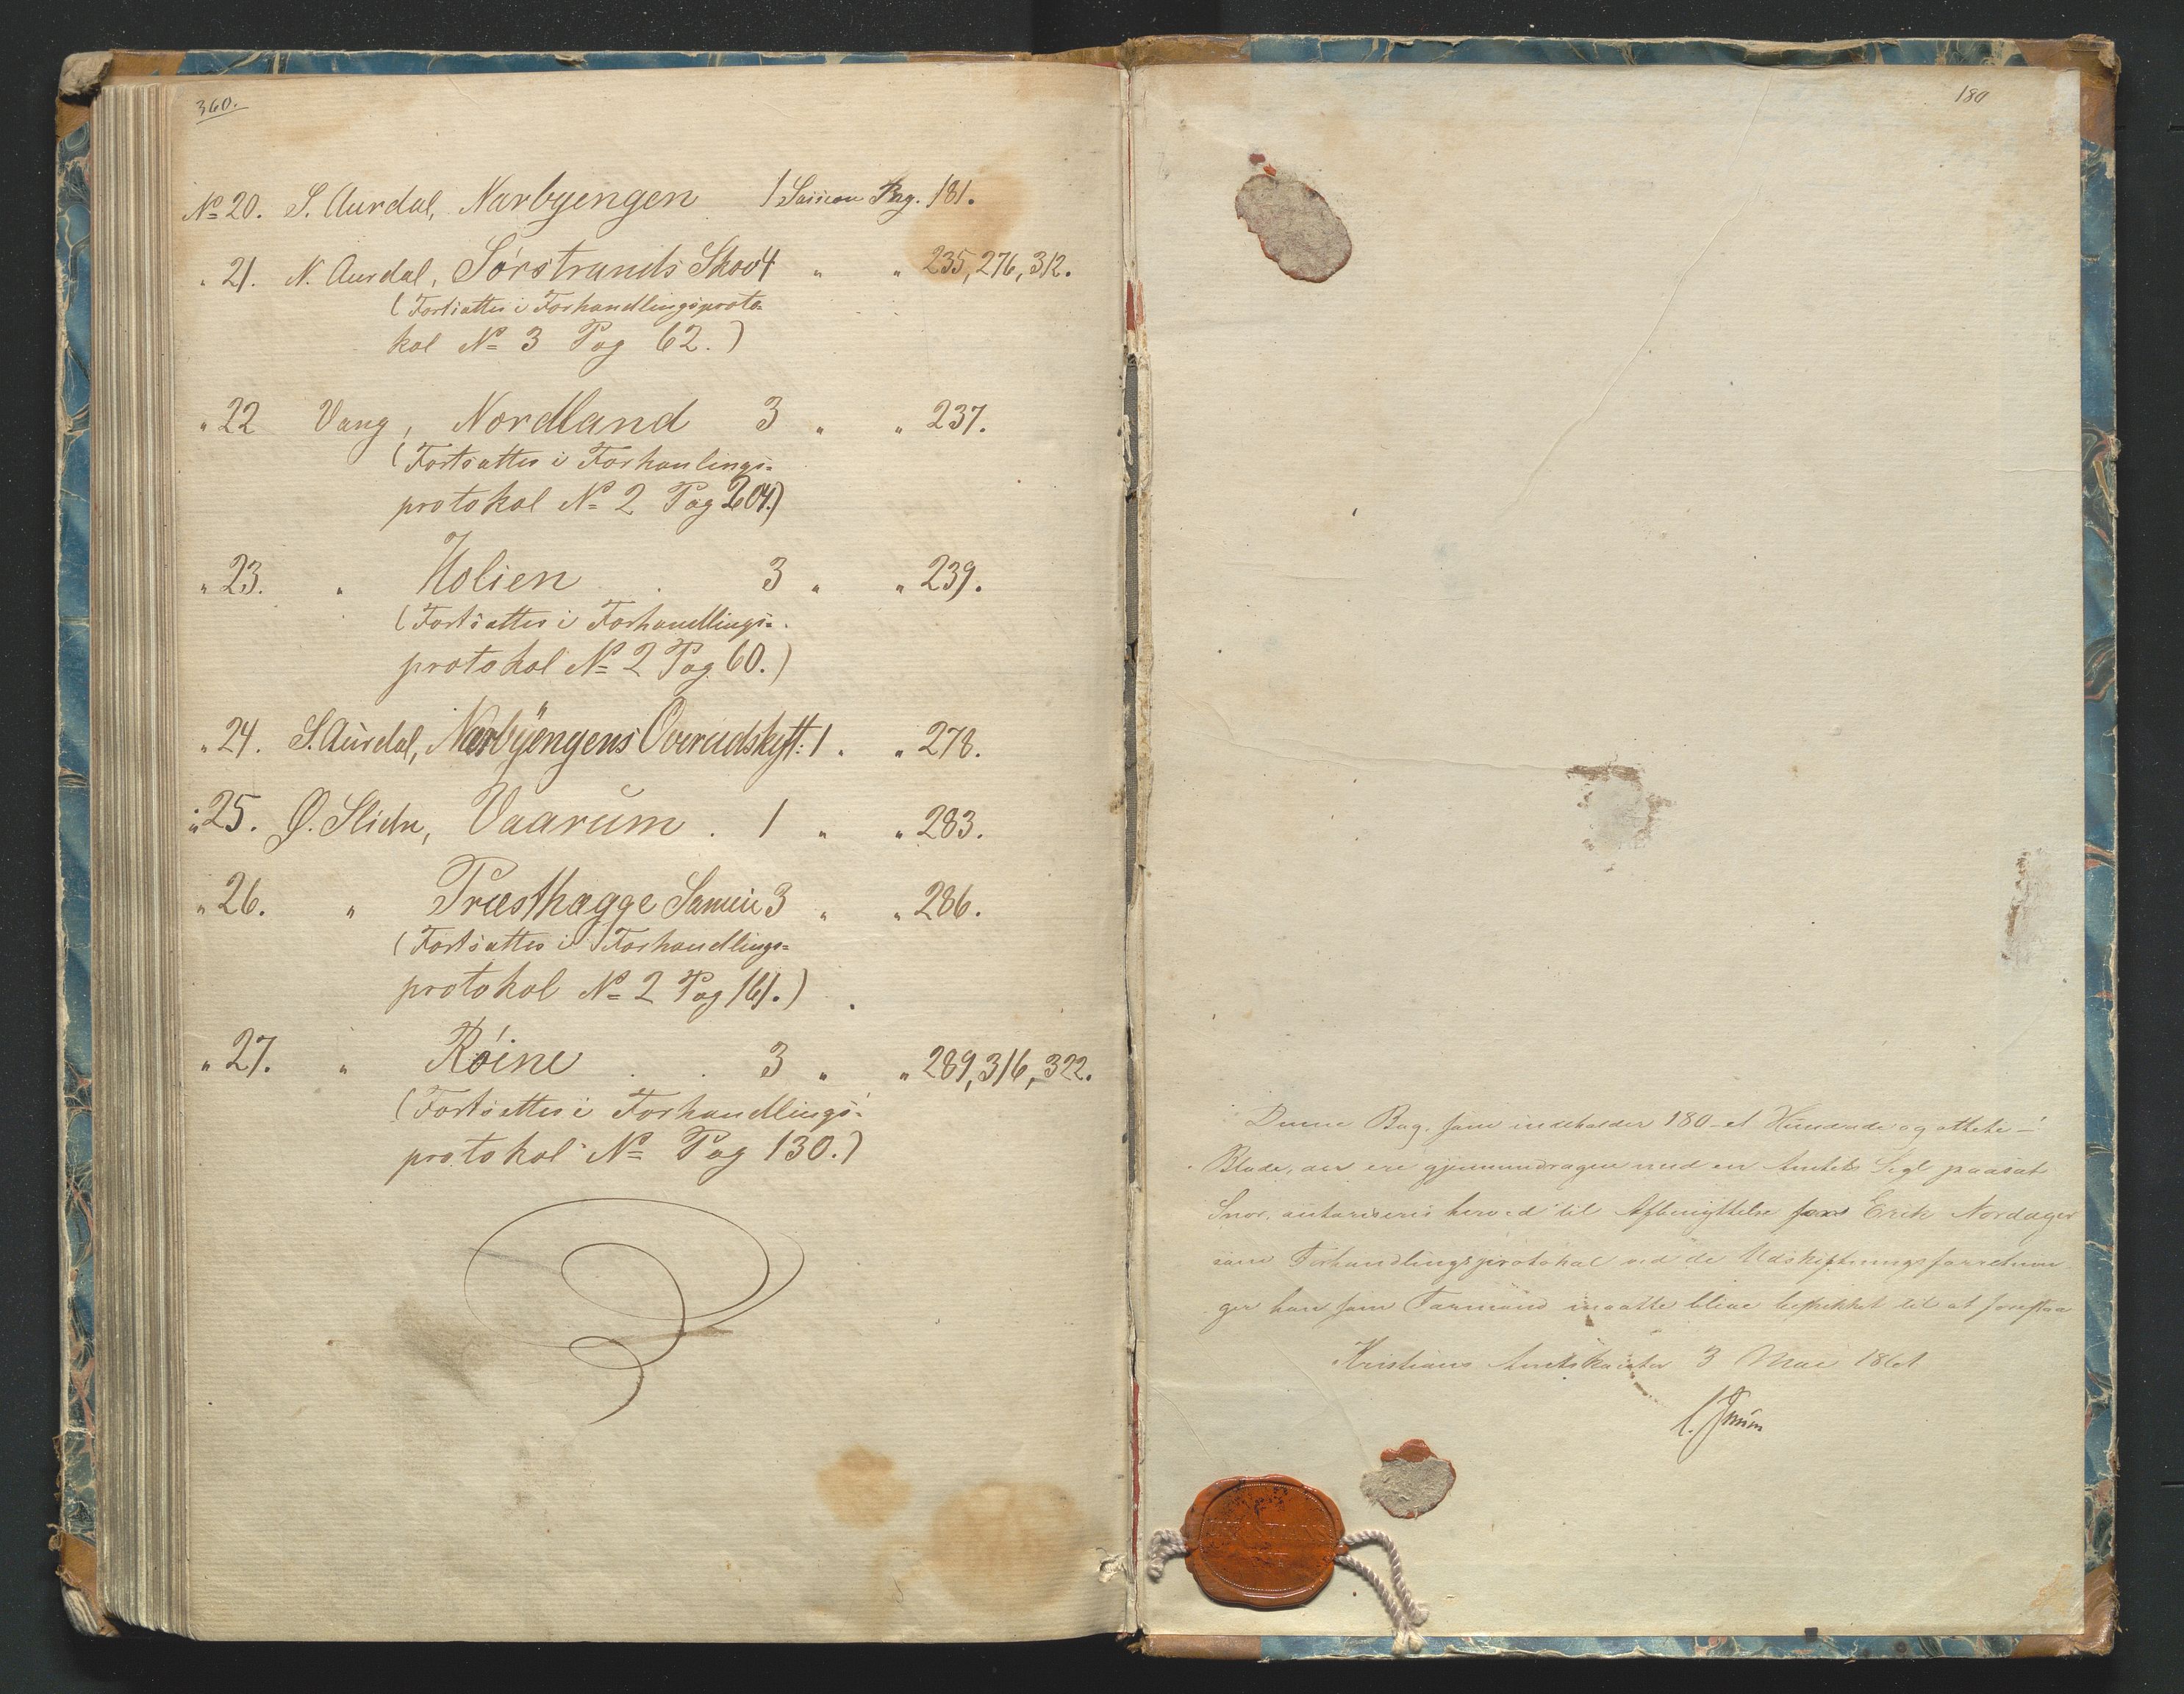 360.
No 20. S. Aurdal, Narbyengen 1 Saison Pag. 181.
" 21. N. Aurdal, Sørstrands Skov 4 " " 235, 276, 312.
(Fortsættes i Forhandlingsproto-
kol No 3 Pag 62.)
" 22 Vang, Nordland 3 " " 237.
(Fortsattes i Forhanlings-
protokol No 2 Pag 204.)
" 23. " Holien 3 " " 239.
(Fortsættes i Forhandlings-
protokol No 2 Pag 60.)
" 24. S. Aurdal, Nærbyengens Overudskift: 1 " " 278.
" 25. Ø. Slidre, Vaarum . 1 " " 283.
" 26. " Præsthægge Sameie 3 " " 286.
(Fortsættes i Forhandlings-
protokol No 2 Pag 161.)
" 27. " Røine . . 3 " " 289, 316, 322.
(Fortsættes i Forhandlings-
protokol No Pag 130.)
180
Denne Bog, som indeholder 180 - et Hundrede og ottete -
Blade, der ere gjennemdragne med en Amtets Segl paasat
Snor, autoriseres herved til Afbenyttelse for Erik Nordager
som Forhandlingsprotokol ved de Udskiftningsforretnin-
ger han som Formand maatte blive beskikket til at forestaa
Kristians Amtskontor 3 Mai 1861